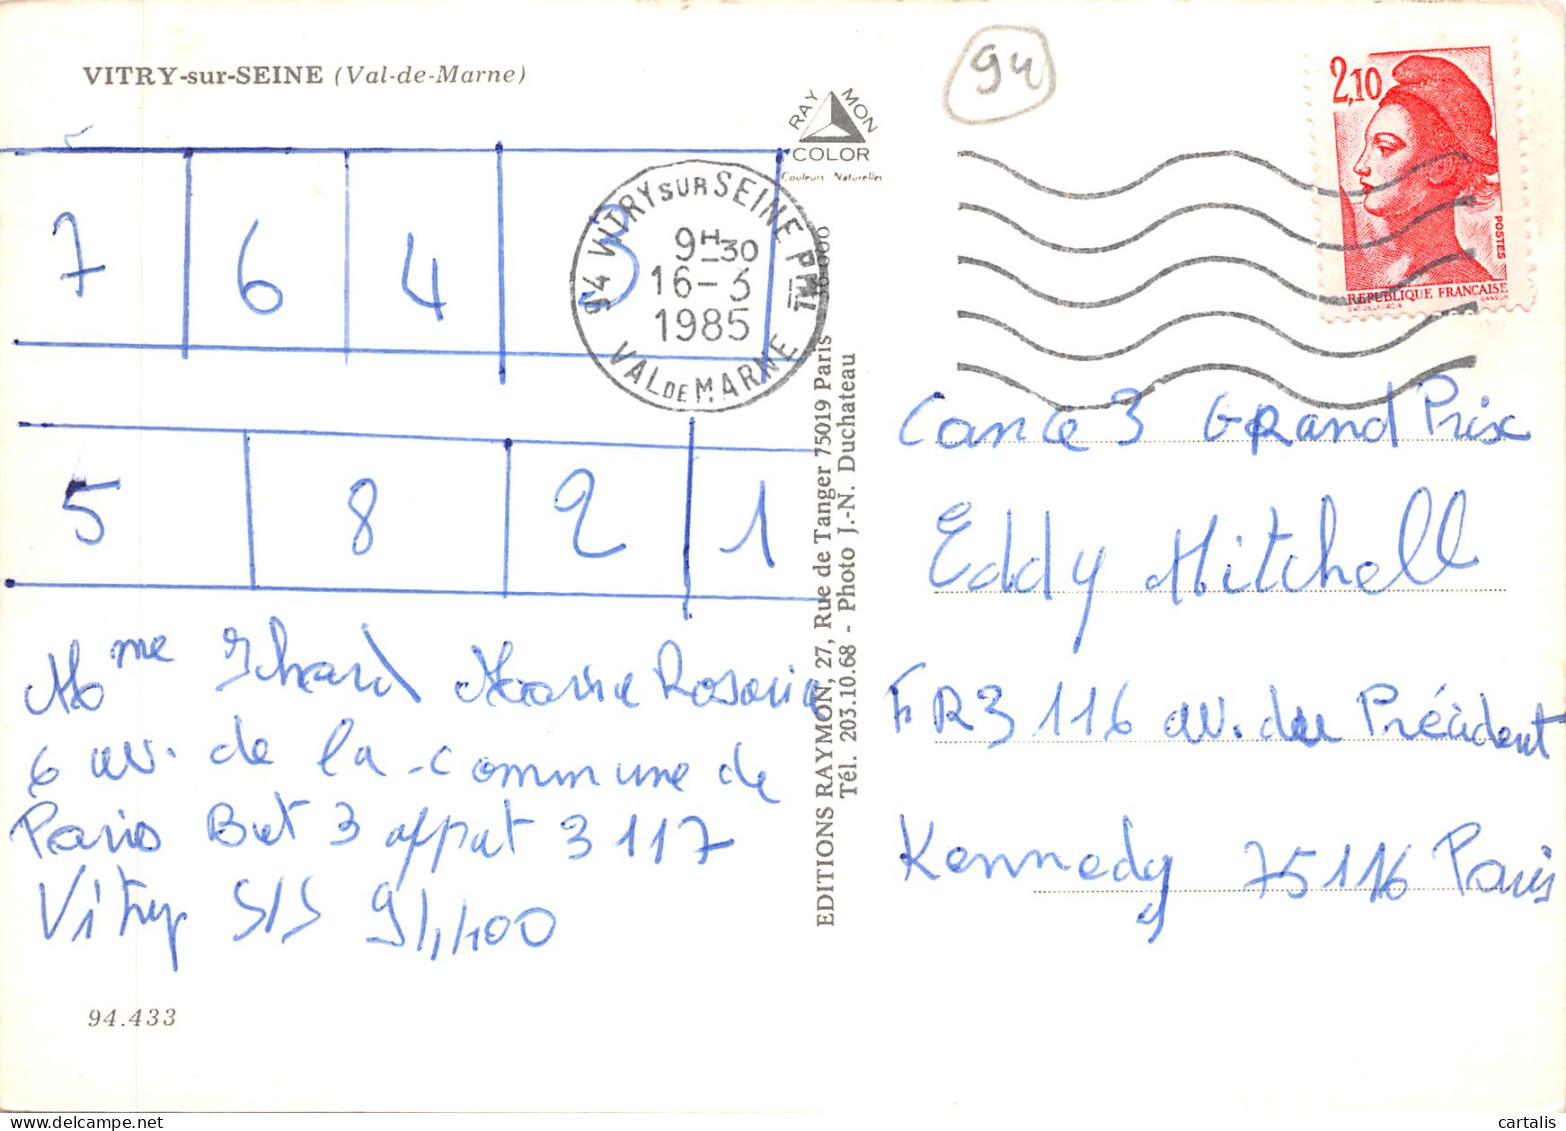 VITRY-sur-SEINE (Val-de-Marne)
94
RAY MON
COLOR
Couleurs Naturelles
2,10
POSTES
REPUBLIQUE FRANÇAISE
94 VITRY SUR SEINE PPAL
9H30
16-3
1985
VAL DE MARNE
7 6 4 3
5 8 2 1
Mme Marie Rosaria
6 av. de la commune de
Paris Bat 3 appat 3117
Vitry S/S 94400
94.433
EDITIONS RAYMON, 27, Rue de Tanger 75019 Paris
Tél. 203.10.68 - Photo J.-N. Duchateau
3 Grand Prix
Eddy Mitchell
FR3 116 av. du Président
Kennedy 75116 Paris
cartalis